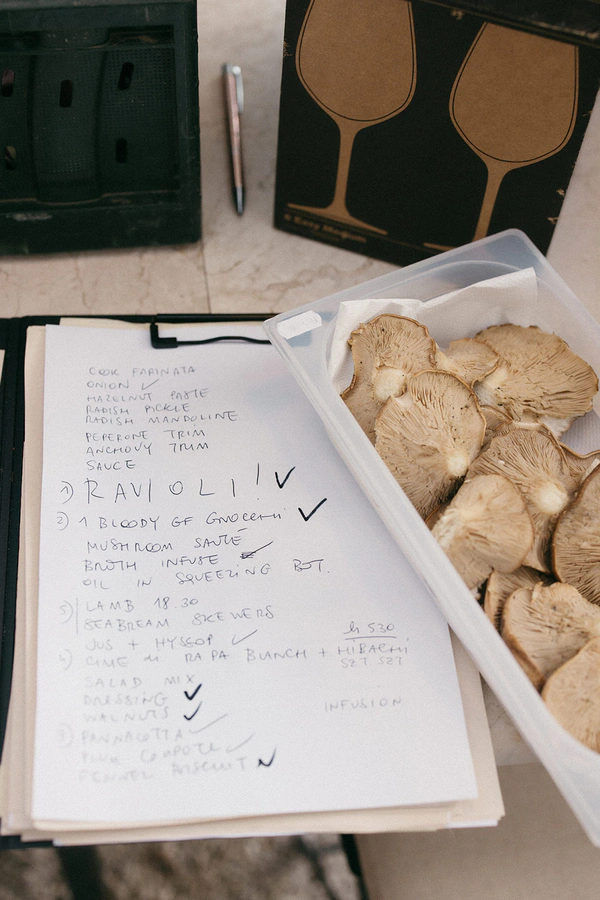 Easy Magnum
COOK FARINATA
ONION ✓
HAZELNUT PASTE
RADISH PICKLE
RADISH MANDOLINE
PEPERONE TRIM
ANCHOVY TRIM
SAUCE
1) RAVIOLI! ✓
2) 1 BLOODY GF GNOCCHI ✓
MUSHROOM SAUTÉ
BROTH INFUSE ✓
OIL IN SQUEEZING BOT.
3) LAMB 18.30
SEABREAM SKEWERS
JUS + HYSSOP ✓
h 530
4) CIME di RAPA BUNCH + HIBACHI
SZT SZT
SALAD MIX
DRESSING ✓
WALNUTS ✓
INFUSION
PANNACOTTA ✓
COMPOTE ✓
FENNEL BISCUIT ✓